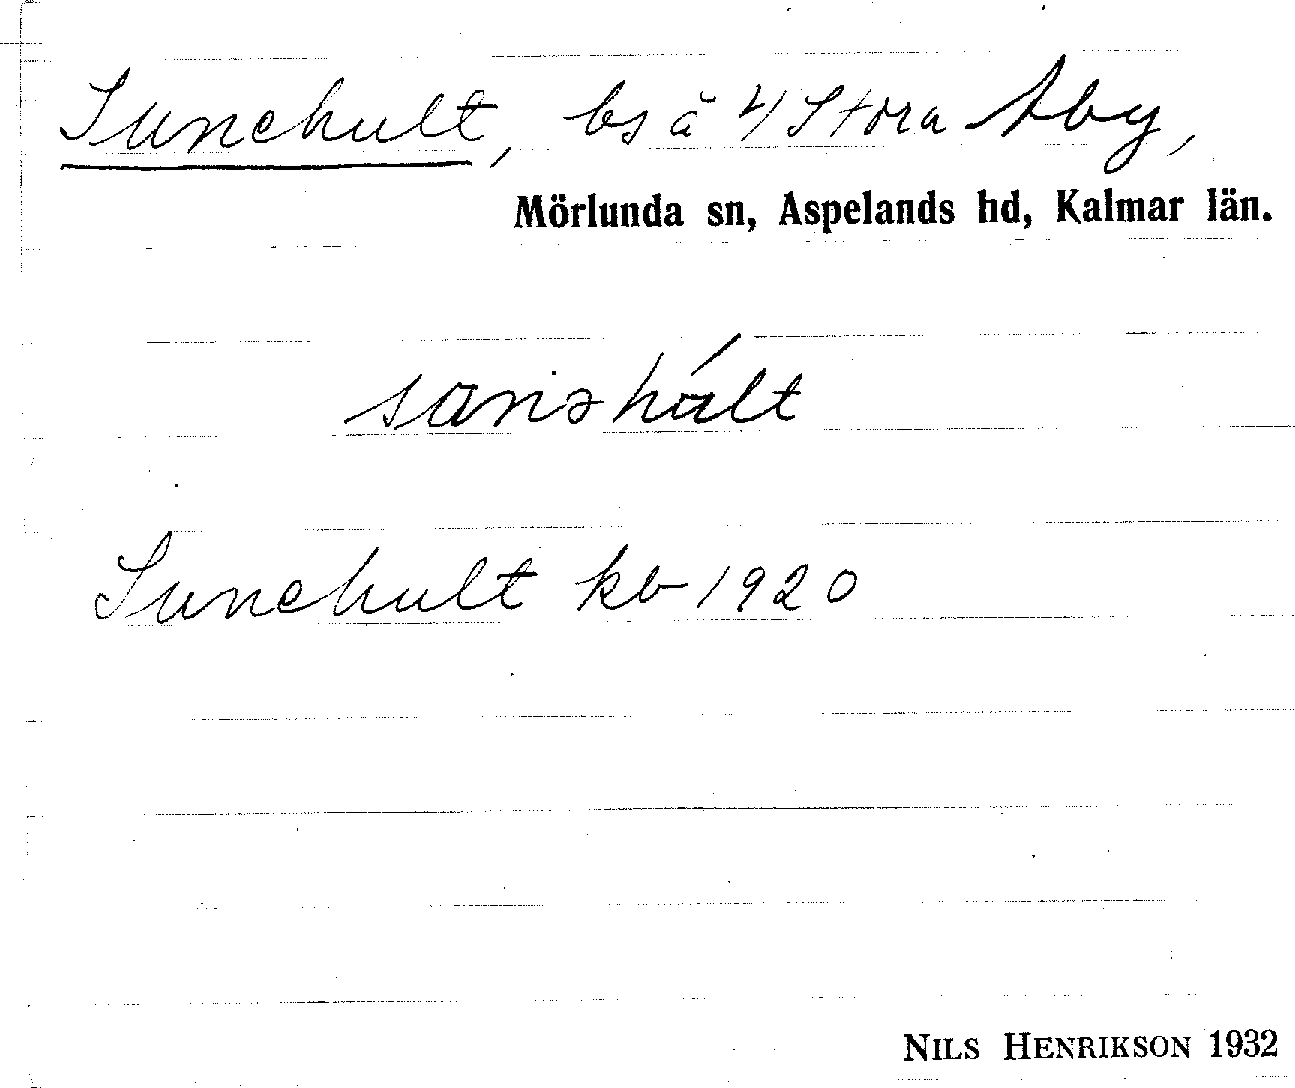 Sunehult, bs å 4/ Stora Åby,
Mörlunda sn, Aspelands hd, Kalmar län.
Sunehult kb 1920
NILS HENRIKSON 1932